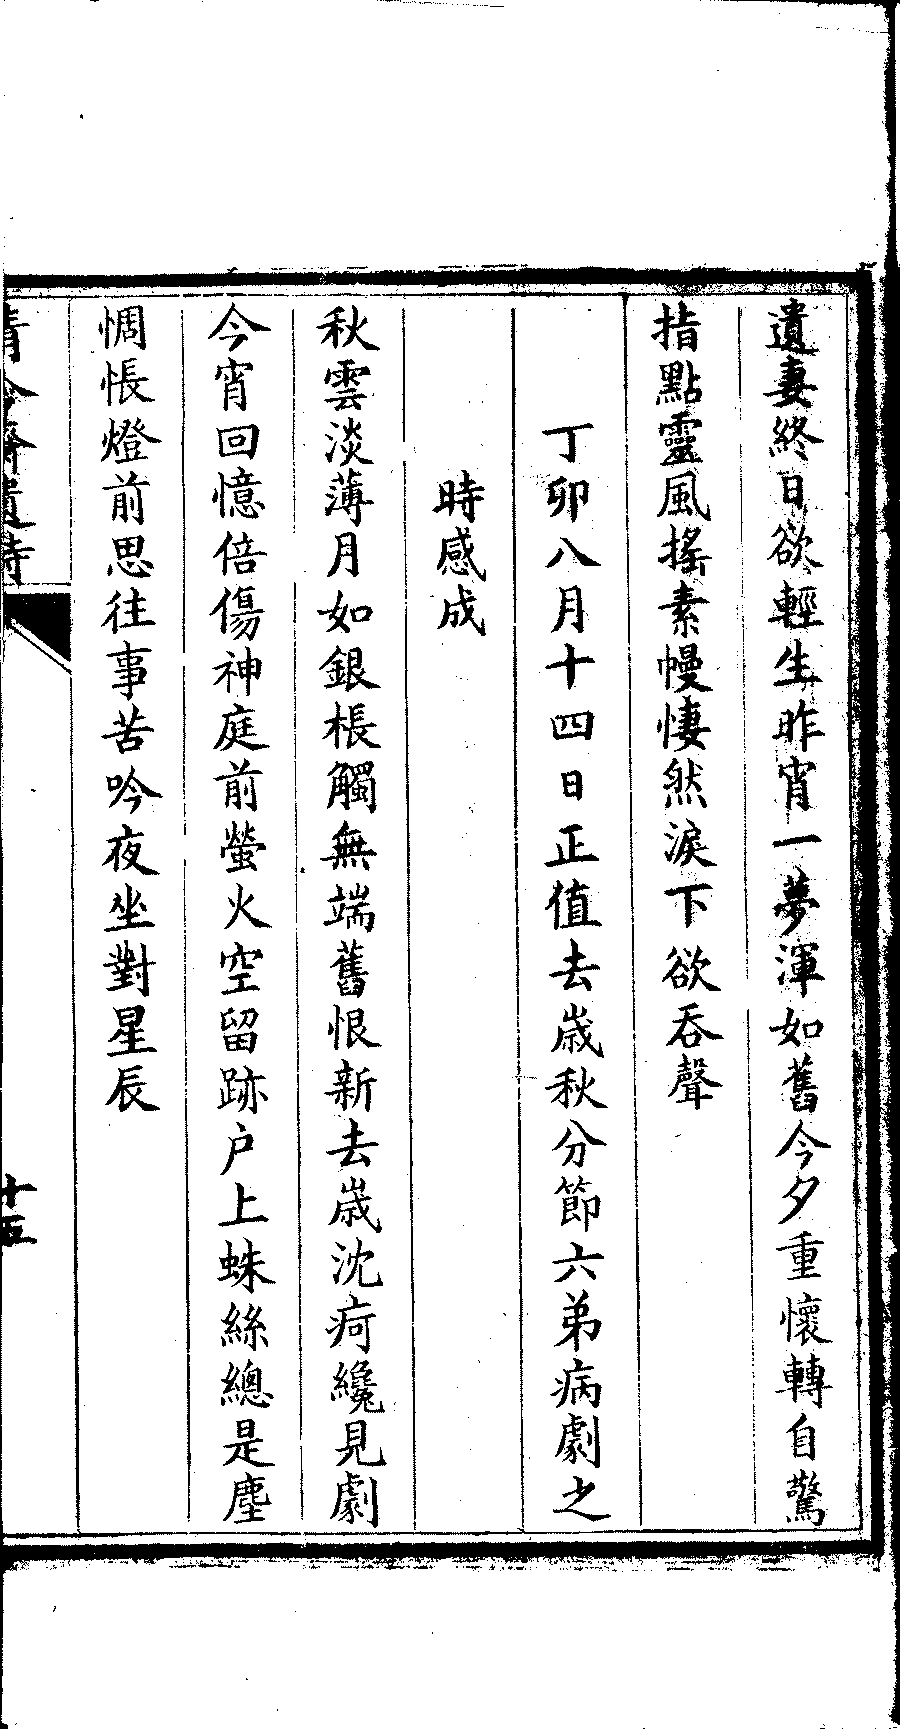 遺妻終日欲輕生昨宵一夢渾如舊今夕重懷轉自驚
指點靈風搖素幔悽然淚下欲吞聲
丁卯八月十四日正值去歲秋分節六弟病劇之
時感成
秋雲淡薄月如銀棖觸無端舊恨新去歲沈疴纔見劇
今宵回憶倍傷神庭前螢火空留跡户上蛛絲總是塵
惆悵燈前思往事苦吟夜坐對星辰
清令齋遺詩
十五